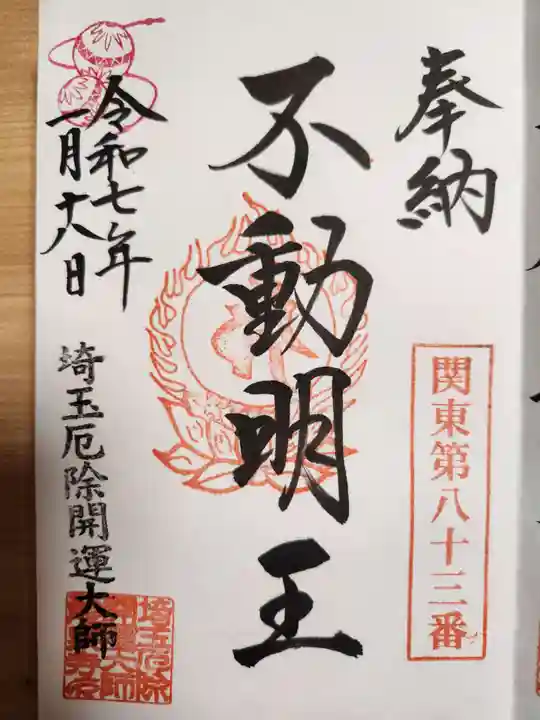 奉納
関東第八十三番
不動明王
令和七年
一月十八日
埼玉厄除開運大師
埼玉厄除